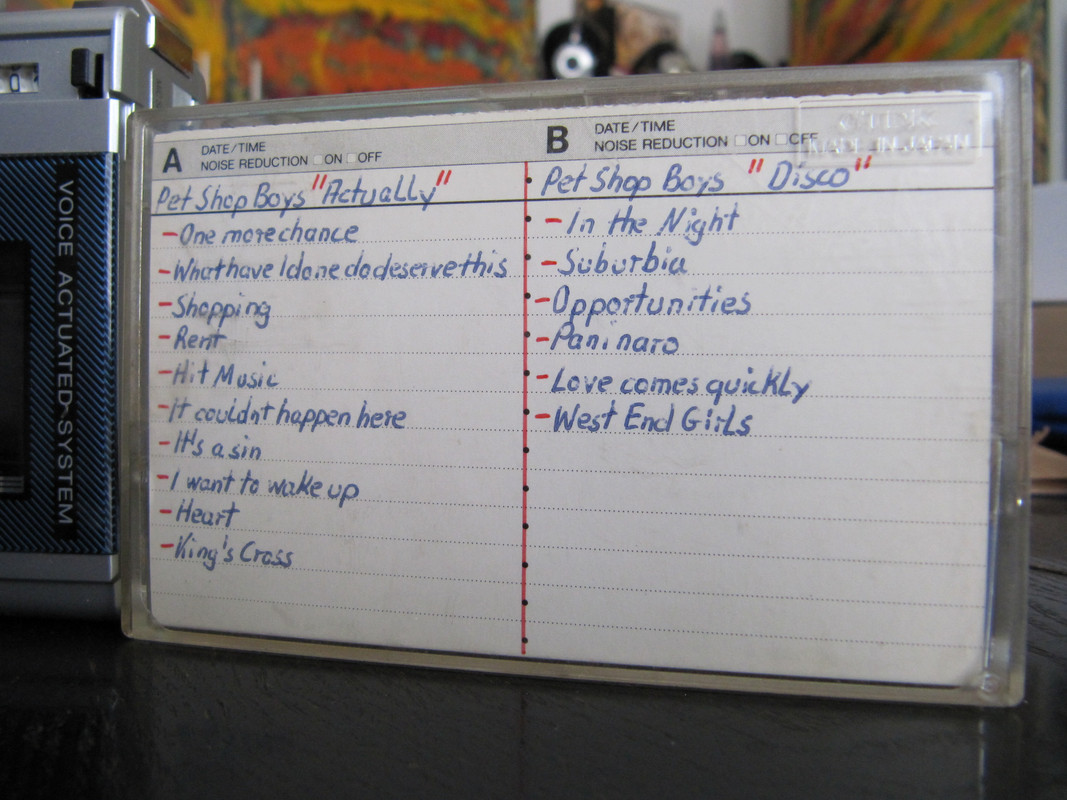 0
VOICE ACTUATED SYSTEM
A DATE/TIME
NOISE REDUCTION ON OFF
Pet Shop Boys "Actually"
-One more chance
-What have I done do deserve this
-Shopping
-Rent
-Hit Music
-It couldn't happen here
-It's a sin
-I want to wake up
-Heart
-King's Cross
B DATE/TIME
NOISE REDUCTION ON OFF
TDK
MADE IN JAPAN
Pet Shop Boys "Disco"
-In the Night
-Suburbia
-Opportunities
-Paninaro
-Love comes quickly
-West End Girls